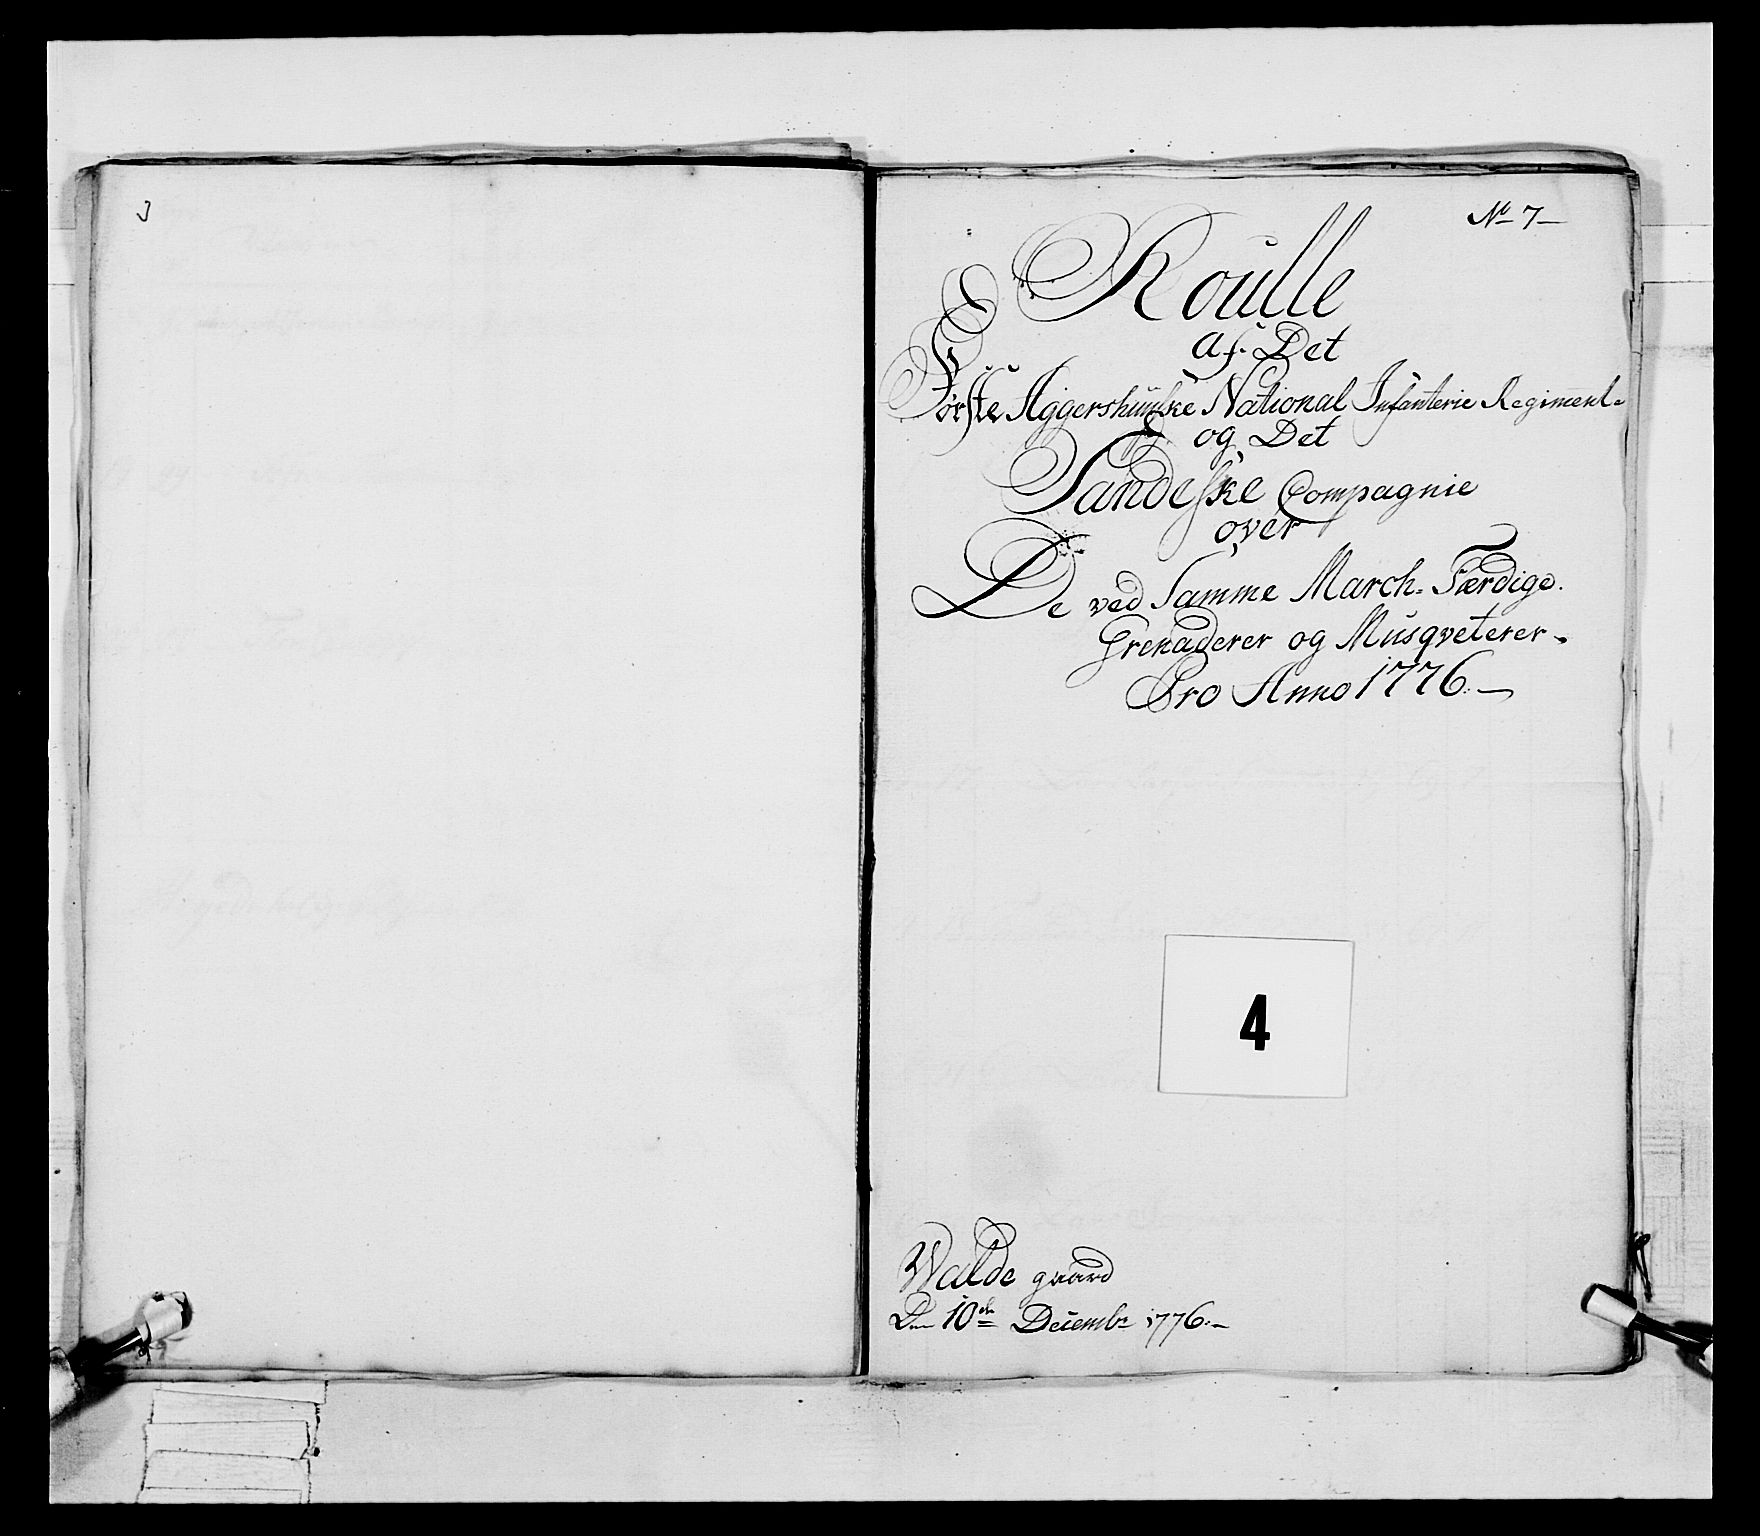 3
No 7
Roulle
af Det
Første Aggershuuske National Infanterie Regiment
og Det
Sandeske Compagnie
over
De ved Samme March-Færdige
Grenaderer og Musqveterer
Pro Anno 1776.
4
Walde gaard
Den 10de Decembr 1776.